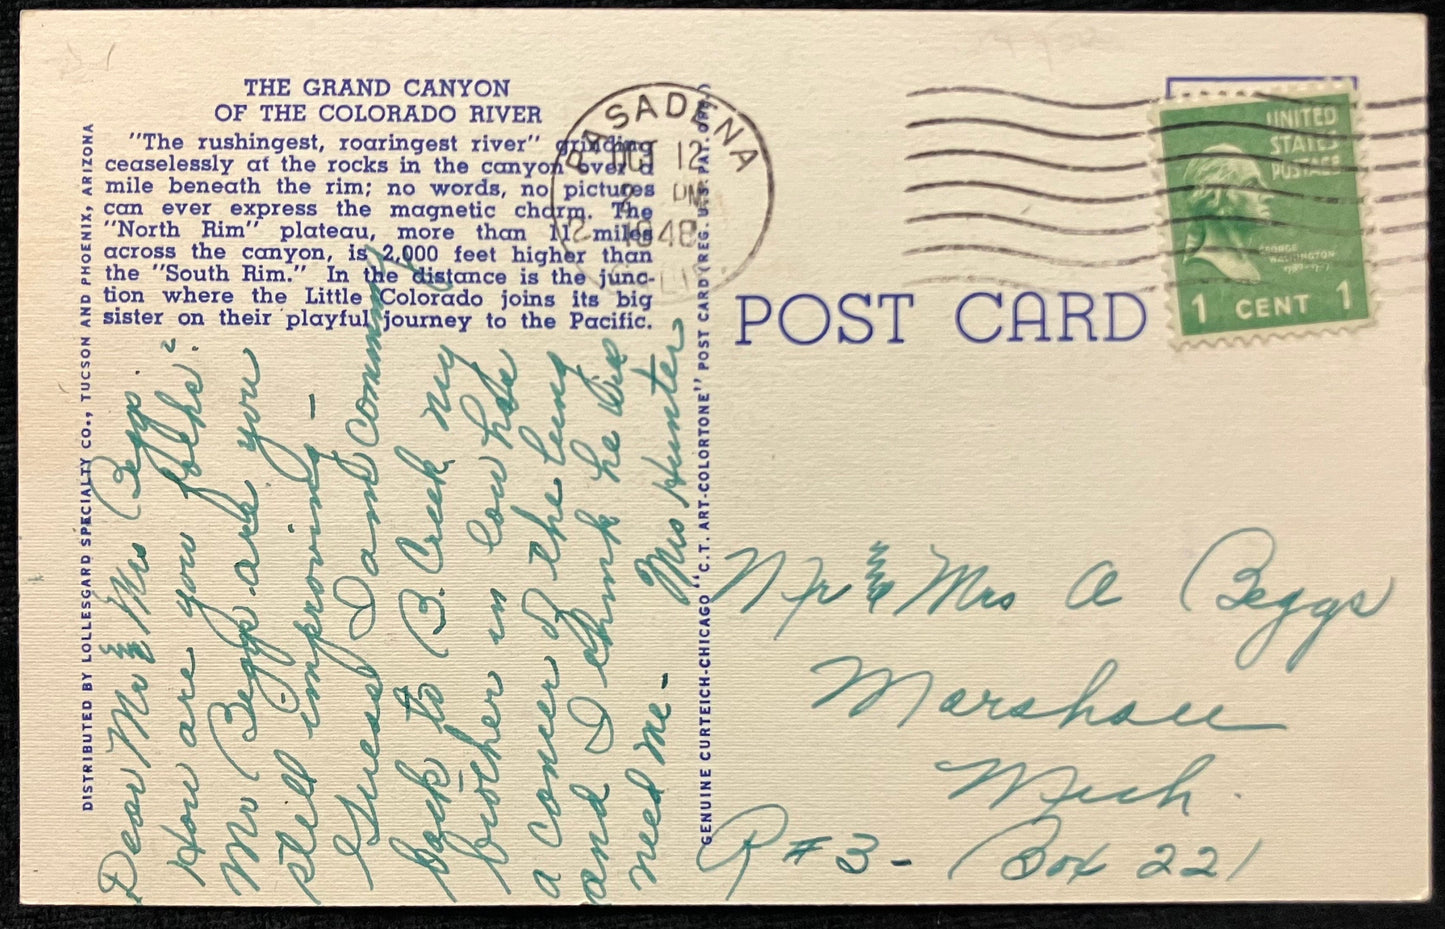 THE GRAND CANYON
OF THE COLORADO RIVER
"The rushingest, roaringest river" grinding
ceaselessly at the rocks in the canyon over a
mile beneath the rim; no words, no pictures
can ever express the magnetic charm. The
"North Rim" plateau, more than 11 miles
across the canyon, is 2,000 feet higher than
the "South Rim." In the distance is the junc-
tion where the Little Colorado joins its big
sister on their playful journey to the Pacific.
DISTRIBUTED BY LOLLESGARD SPECIALTY CO., TUCSON AND PHOENIX, ARIZONA
Dear Mr & Mrs Beggs.
How are you folks?
Mr Beggs are you
still improving –
Guess I am coming
back to B. Creek my
brother in law has
a cancer of the lung
and I think he will
need me –
Mrs Hunter
GENUINE CURTEICH-CHICAGO "C.T. ART-COLORTONE" POST CARD (REG. U.S. PAT. OFF.)
PASADENA
OCT 12
2 PM
1948
POST CARD
UNITED
STATES
POSTAGE
GEORGE
WASHINGTON
1789-1797
1 CENT 1
Mr & Mrs A Beggs
Marshall
Mich.
R #3 – Box 221